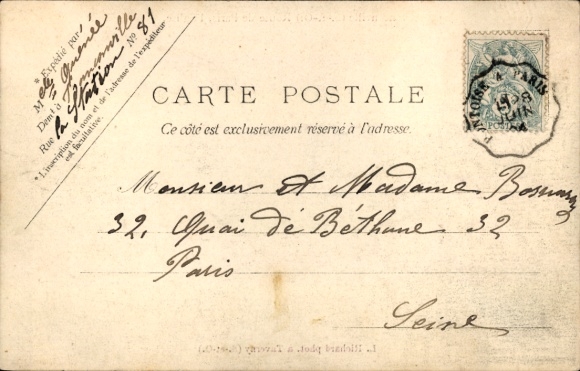 * Expédié par
Melle Quenée
Demt à Franconville
Rue la Station No 81
* L'inscription du nom et de l'adresse de l'expéditeur
est facultative.
PONTOISE A PARIS
CARTE POSTALE
Ce côté est exclusivement réservé à l'adresse.
Monsieur et Madame
32, Quai de Béthune 32
Paris
Seine
L. Richard phot. à Taverny (S.-et-O.)